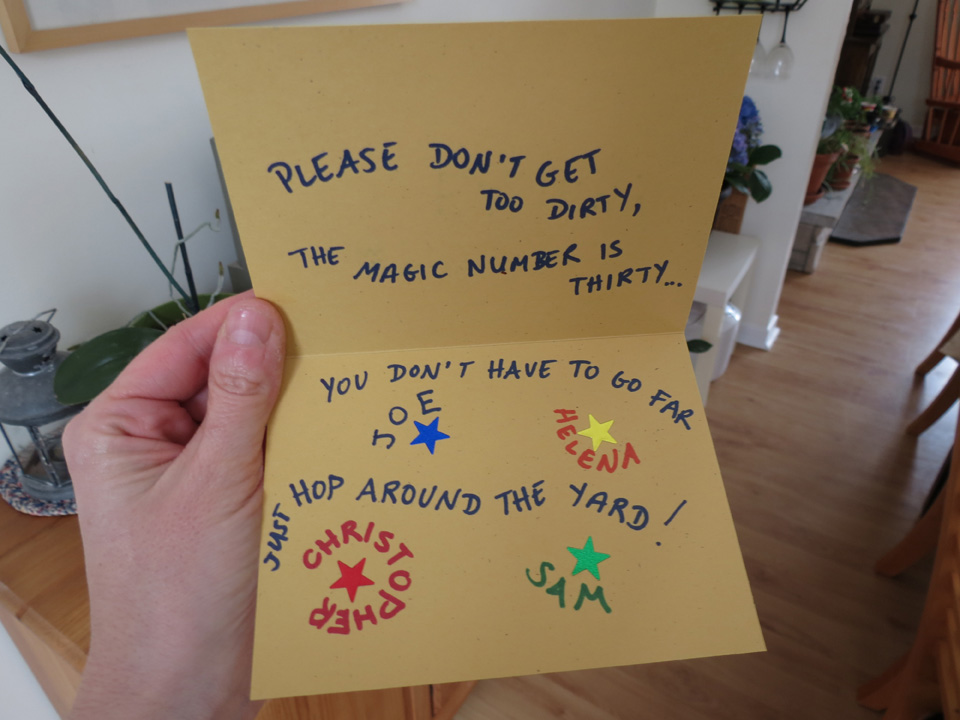 PLEASE DON'T GET
TOO DIRTY,
THE MAGIC NUMBER IS
THIRTY...
YOU DON'T HAVE TO GO FAR
JOE
HELENA
JUST HOP AROUND THE YARD!
CHRISTOPHER
SAM